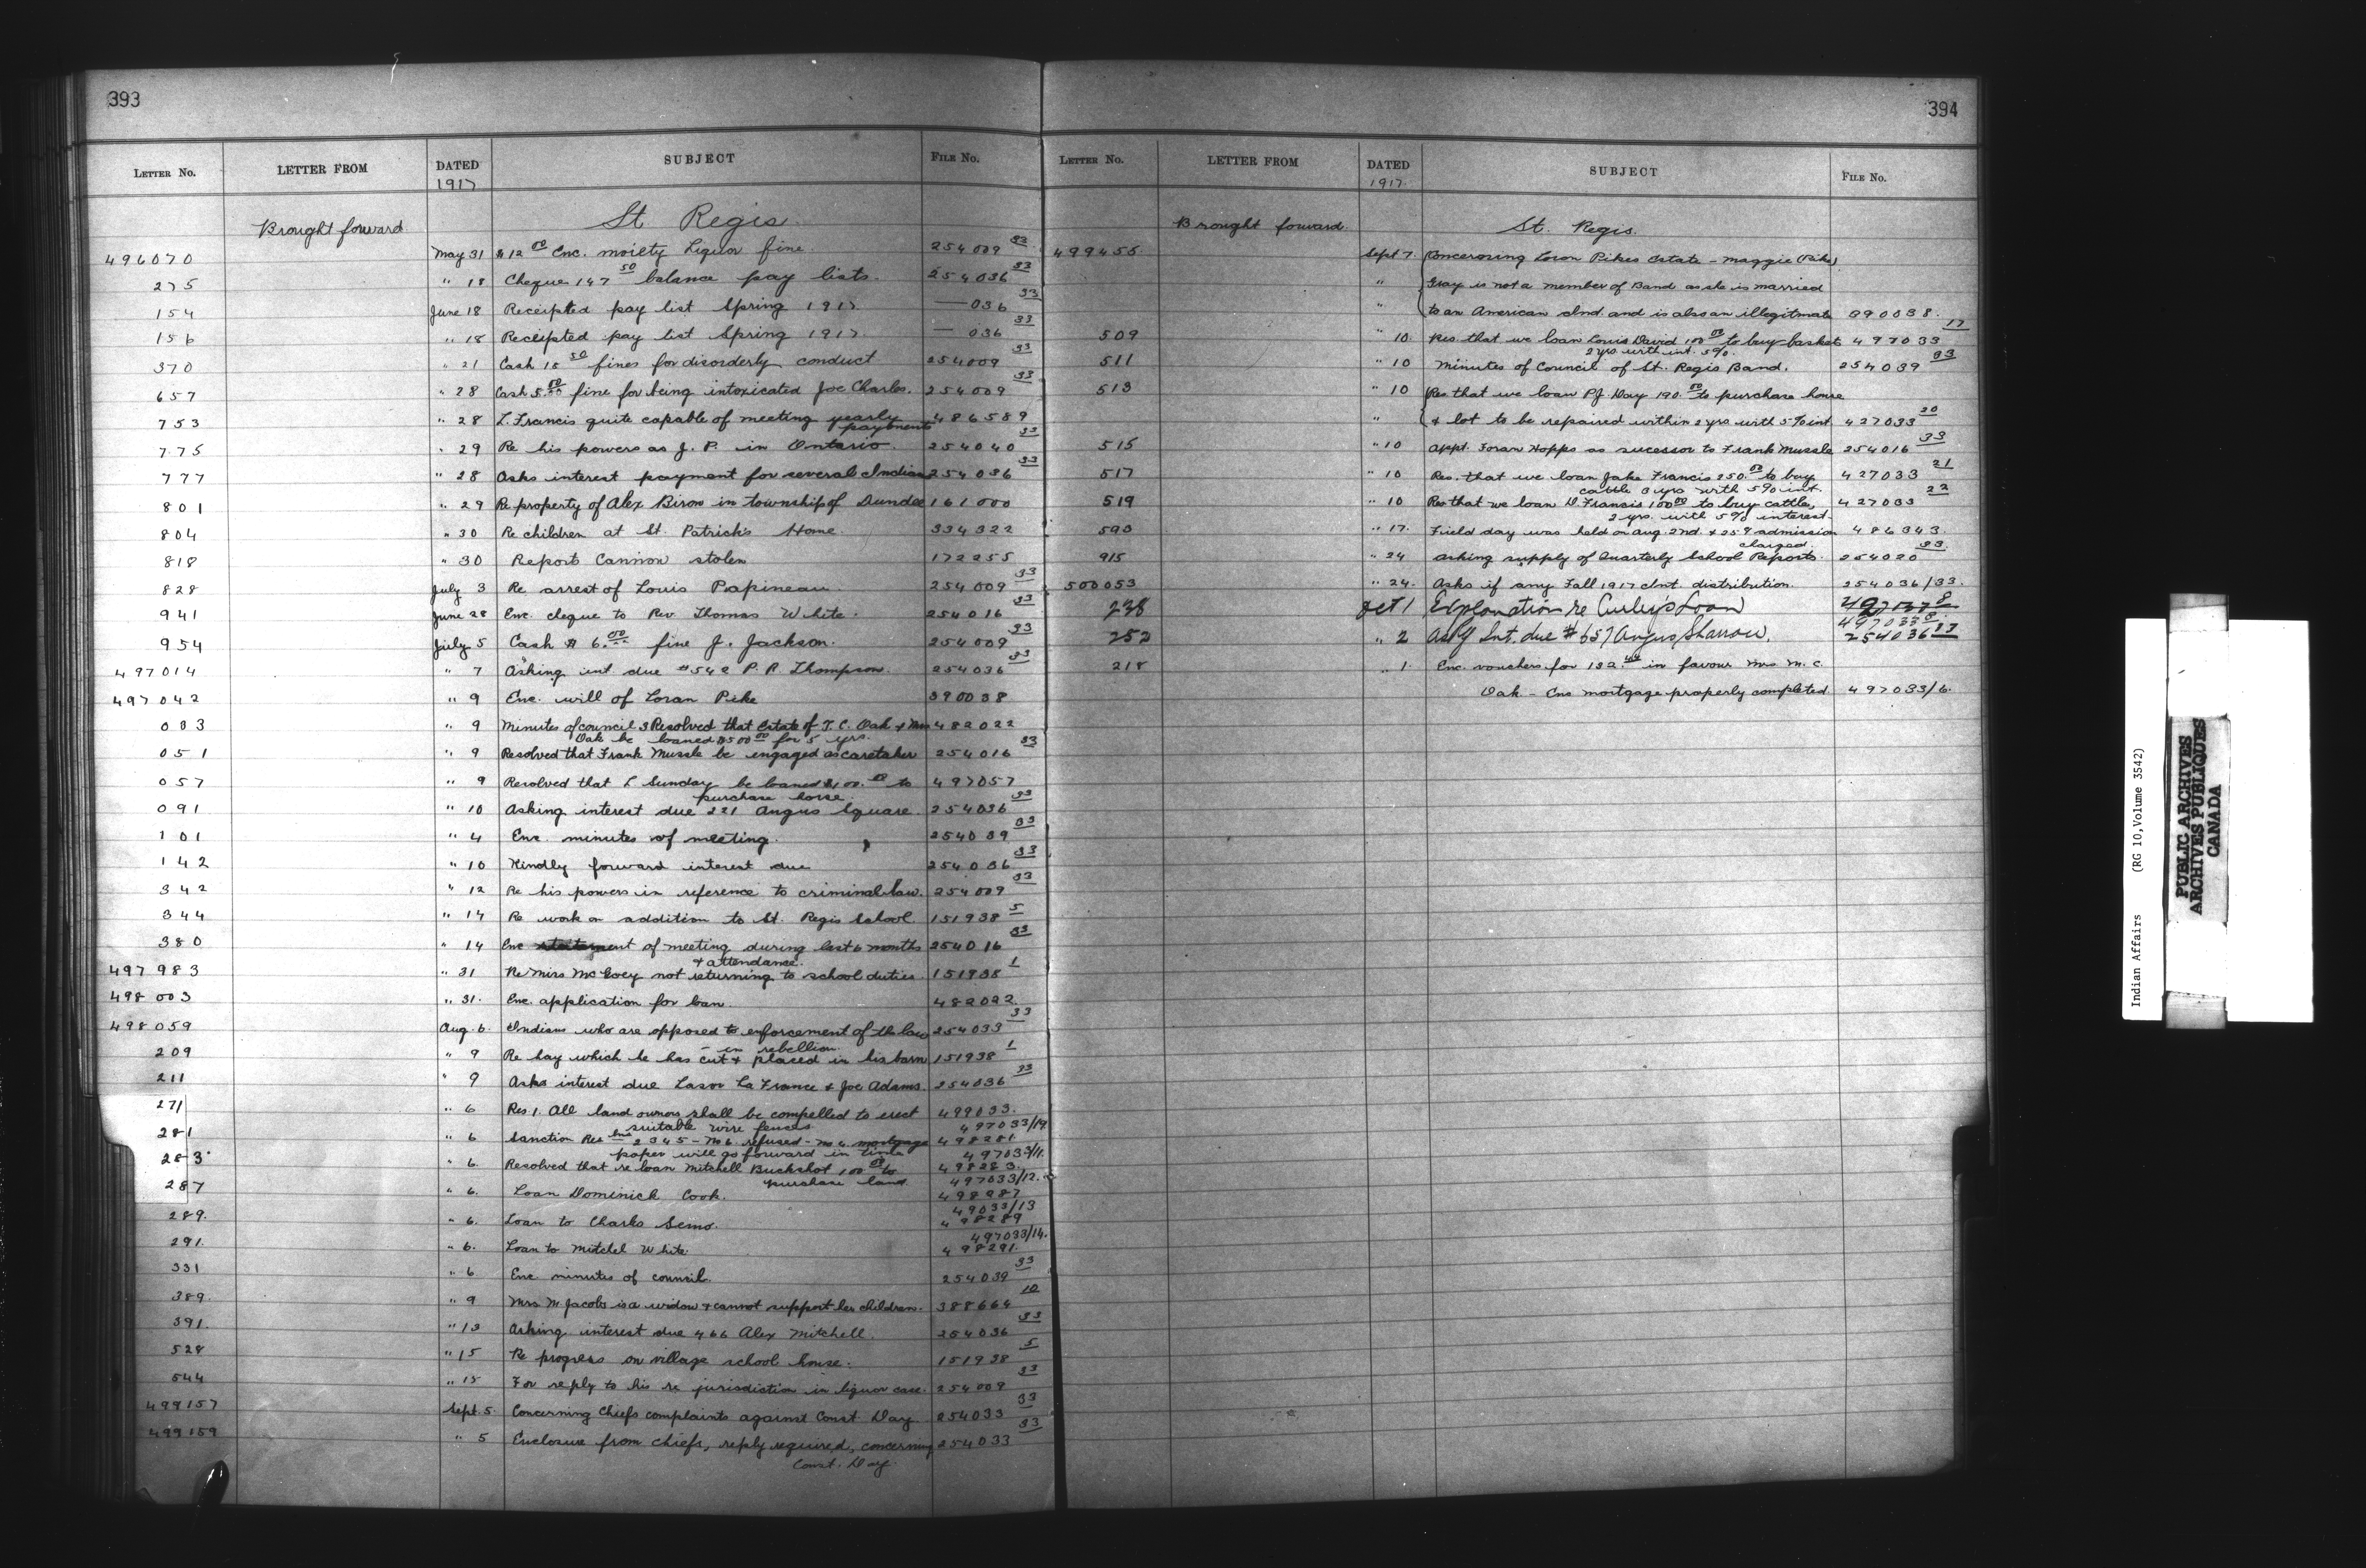 393
LETTER No. LETTER FROM DATED SUBJECT FILE No.
1917
Brought forward St Regis
496070 May 31 $12 00 Enc. moiety Liquor fine 254009 33
275 " 18 Cheque 147 50 balance pay lists. 254036 33
154 June 18 Receipted pay list Spring 1917 — 036 33
156 " 18 Receipted pay list Spring 1917. — 036 33
370 " 21 Cash 15 50 fines for disorderly conduct 254009 33
657 " 28 Cash 5.00 fine for being intoxicated Joe Charles. 254009 33
753 " 28 L. Francis quite capable of meeting yearly 486589
payments
775 " 29 Re his powers as J. P. in Ontario. 254040 33
777 " 28 Asks interest payment for several Indians 254036 33
801 " 29 Re property of Alex Biron in township of Dundee 161000
804 " 30 Re children at St. Patrick's Home 334322
818 " 30 Report Cannon stolen 172255
828 July 3 Re arrest of Louis Papineau. 254009 33
941 June 28 Enc. cheque to Rev Thomas White. 254016 33
954 July 5 Cash $ 6.00 fine J. Jackson. 254009 33
497014 " 7 Asking int due #542 P. R. Thompson. 254036 33
497042 " 9 Enc. will of Loran Pike 390038
033 " 9 Minutes of council 3 Resolved that Estate of T. C. Oak & Mrs 482022
Oak be loaned $500 00 for 5 yrs.
051 " 9 Resolved that Frank Mussle be engaged as caretaker 254016 33
057 " 9 Resolved that L Sunday be loaned $100. 00 to 497057
purchase horse.
091 " 10 Asking interest due 221 Angus Square. 254036 33
101 " 4 Enc. minutes of meeting. 254039 33
142 " 10 Kindly forward interest due 254036 33
342 " 12 Re his powers in reference to criminal law. 254009 33
344 " 14 Re work on addition to St. Regis School. 151938 5
380 " 14 Enc statement of meeting during last 6 months 254016 33
& attendance.
497983 " 31 Re Miss McEvoy not returning to school duties. 151938 1
498003 " 31. Enc. application for loan. 482022
498059 Aug. 6. Indians who are opposed to enforcement of the law 254033 33
- in rebellion.
209 " 9 Re hay which he has cut & placed in his barn 151938 1
211 " 9 Asks interest due Lasor La France & Joe Adams. 254036 33
271 " 6 Res 1. All land owners shall be compelled to erect 499033.
suitable wire fences 497033/19
281 " 6 Sanction Res 2 3 4 5 - No 6. refused - no 4. mortgage 498281
paper will go forward in time 497033/11.
283 " 6. Resolved that re loan Mitchell Buckshot 100 00 to 498283.
purchase land. 497033/12.
287 " 6. Loan Dominick Cook. 498287
49033/13
289. " 6. Loan to Charles Semo. 498289
497033/14.
291. " 6. Loan to Mitchel White 498291.
331 " 6 Enc. minutes of council. 254039 33
389. " 9 Mrs M Jacobs is a widow & cannot support her children. 388664 10
391. " 13 Asking interest due 466 Alex Mitchell. 254036 33
528 " 15 Re progress on village school house. 151938 5
544 " 15 For reply to his re jurisdiction in liquor case. 254009 33
499157 Sept. 5. Concerning Chiefs complaints against Const. Day 254033 33
499159 " 5 Enclosure from chiefs, reply required, concerning 254033 33
Const. Day.
394
LETTER No. LETTER FROM DATED SUBJECT FILE No.
1917.
Brought forward St. Regis.
499455 Sept 7. Concerning Loran Pikes Estate - Maggie (Pike)
" Gray is not a member of Band as she is married
" to an American Ind. and is also an illegitmate 390038.
509 " 10. Res. that we loan Louis David 100 00 to buy basket 497033 17
2 yrs. with int. 5%.
511 " 10 Minutes of Council of St. Regis Band. 254039 33
513 " 10 Res that we loan P.J. Day 190. 00 to purchase house
" & lot to be repaired within 2 yrs with 5% int 427033 20
515 " 10 Appt. Foran Hopps as sucessor to Frank Mussle 254016 33
517 " 10 Res. that we loan Jake Francis 250. 00 to buy 427033 21
cattle 3 yrs with 5% int.
519 " 10 Res that we loan D. Francis 100 00 to buy cattle, 427033 22
2 yrs. with 5% interest.
593 " 17. Field day was held on Aug. 2nd. & 25¢ admission 486343.
charged.
915 " 24 Asking supply of Quarterly School Reports. 254020 33
500053 " 24. Asks if any Fall 1917 Int. distribution. 254036/33.
238 Oct 1 Explanation re Curley's Loan
497033 8
252 " 2 Ask'g Int. due #657 Angus Sharrow. 254036 33
218 " 1. Enc. vouchers for 132. 44 in favour Mrs M. C.
Oak - Enc mortgage properly completed 497033/6.
Indian Affairs (RG 10, Volume 3542)
PUBLIC ARCHIVES
ARCHIVES PUBLIQUES
CANADA